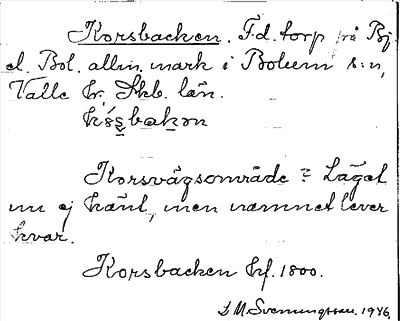 Korsbacken. F.d. torp på Bj
el. Bol. allm. mark i Bolum s:n,
Valle hr, Skb. län.
kɷ́s̱bakən
Korsvägsområde = Läget
nu ej känt, men namnet lever
kvar.
Korsbacken hf. 1800.
S M. Svenungsson. 1946.